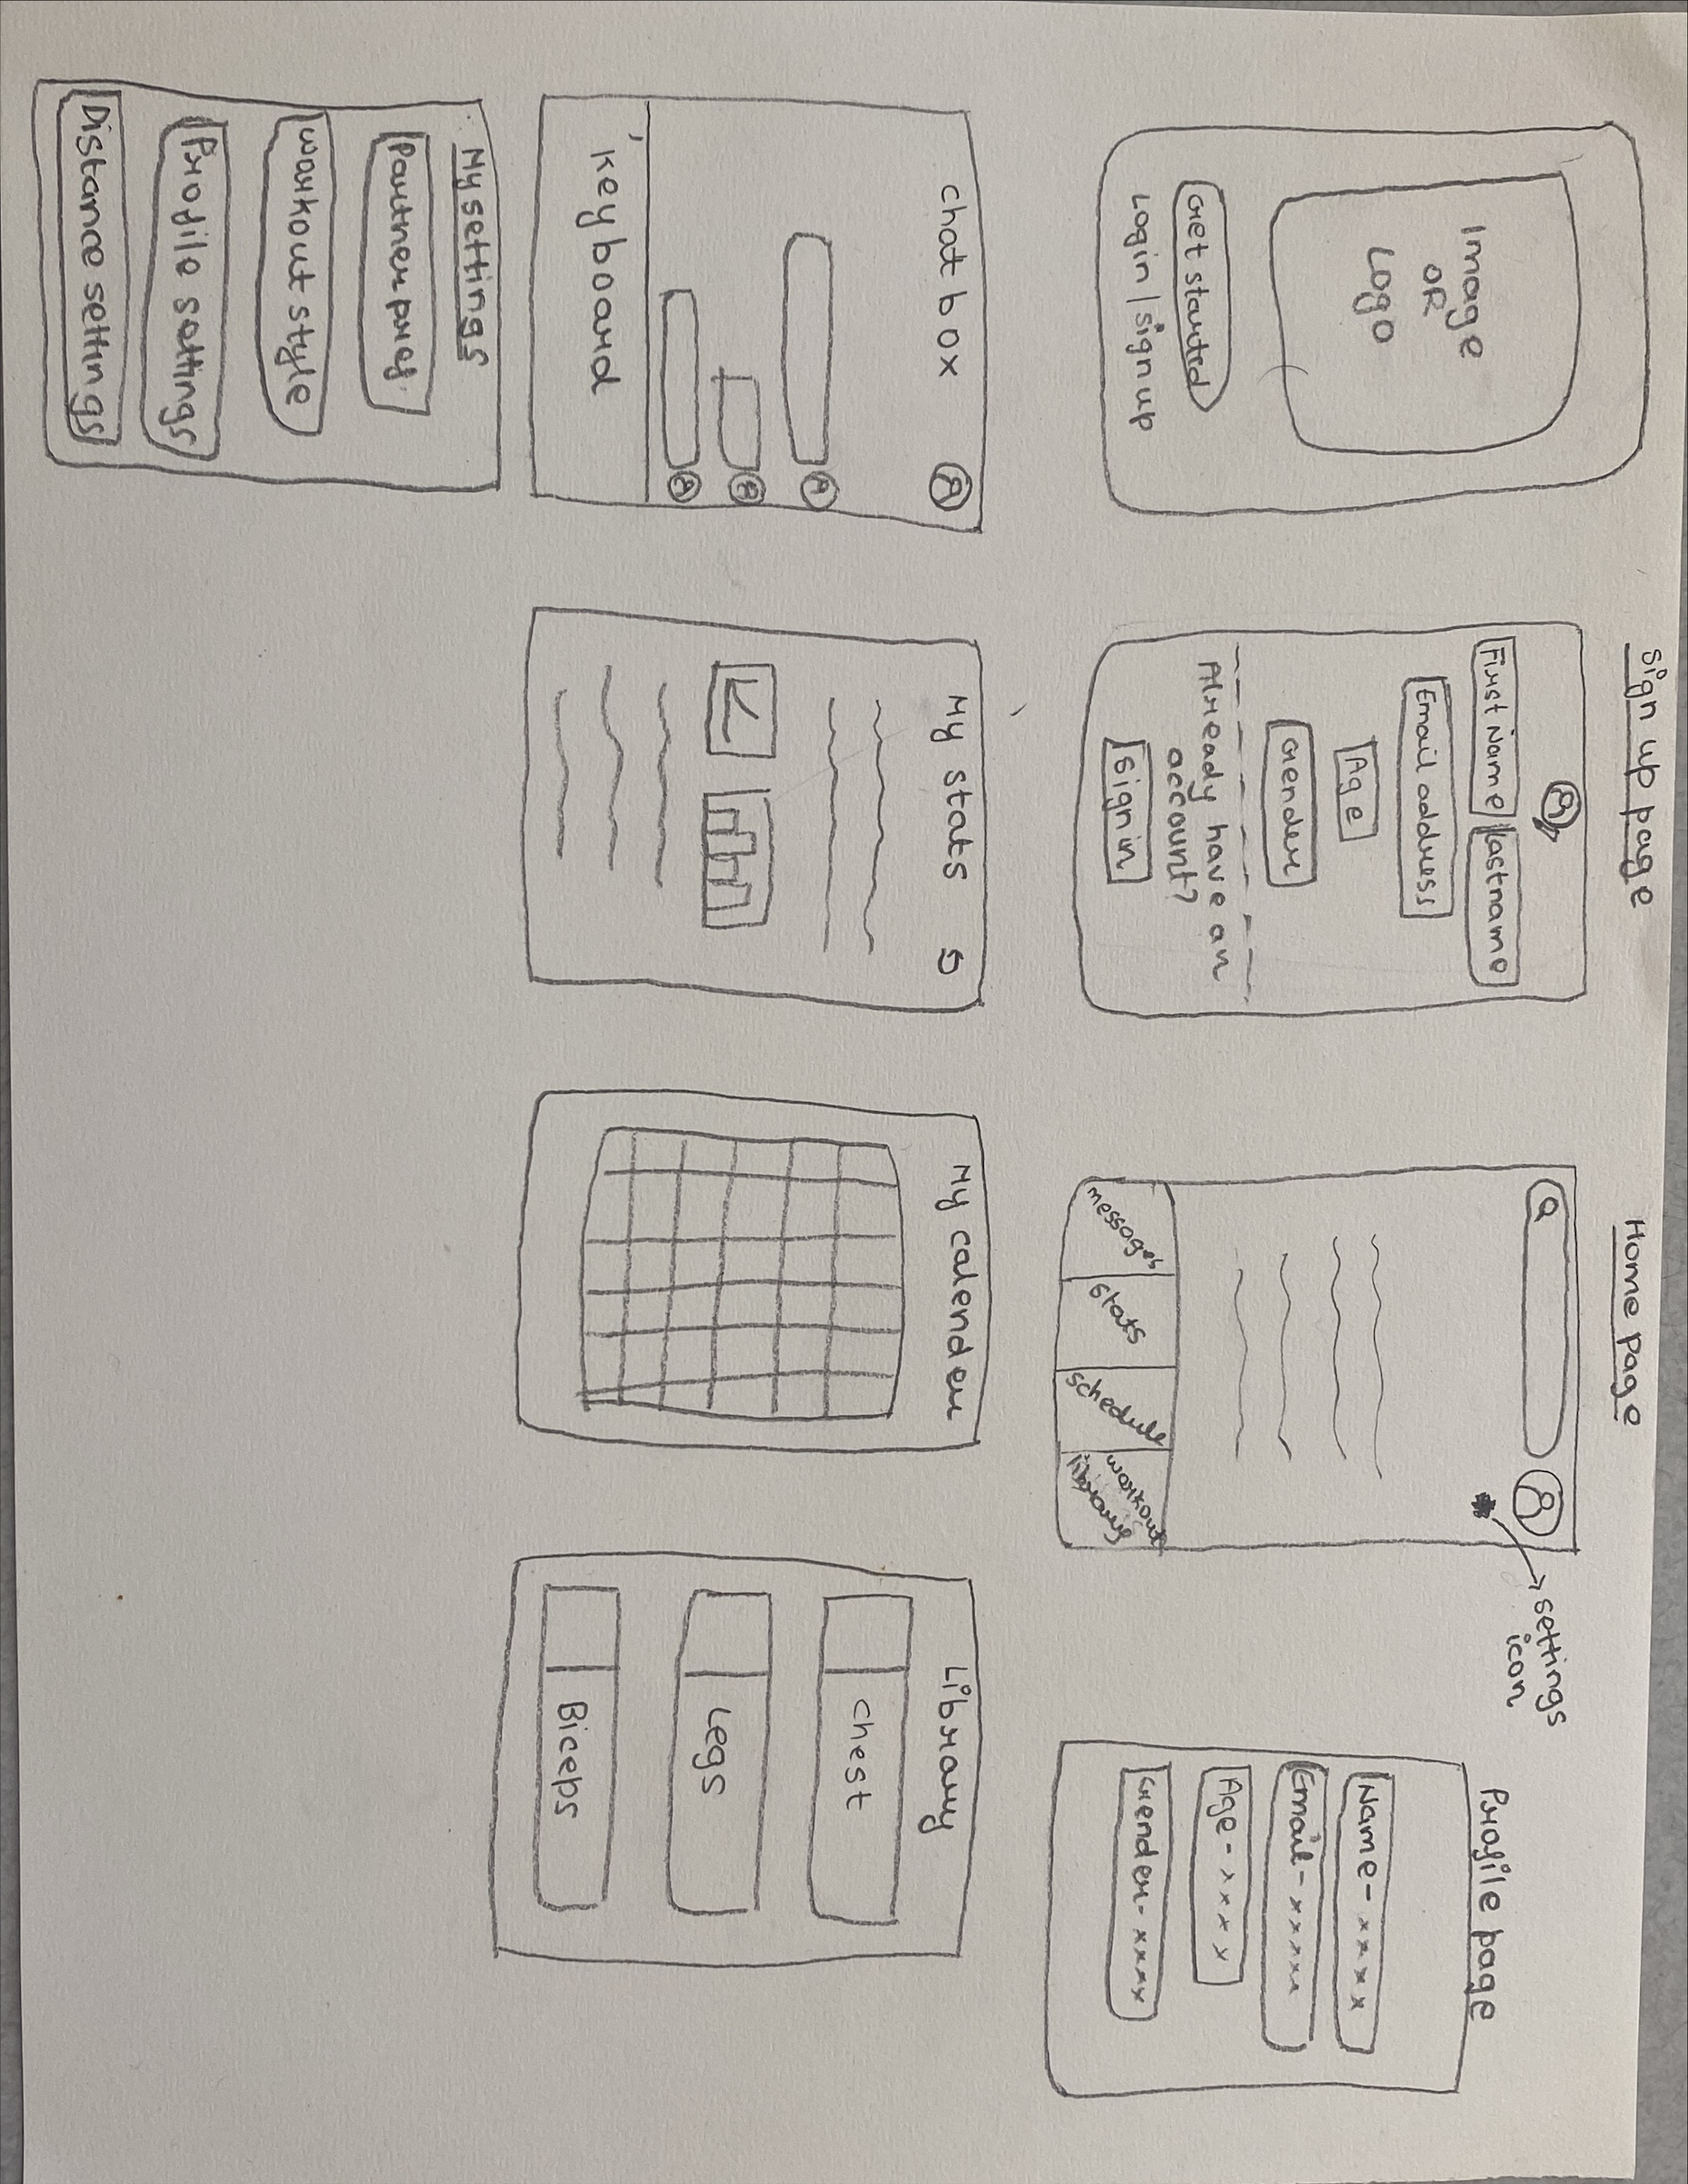 Image
OR
Logo
Get started
Login | sign up
Sign up page
First Name
Lastname
Email address
Age
Gender
Already have an
account?
Sign in
Home page
settings
icon
messages
stats
schedule
workout
library
Profile page
Name - xxxx
Email - xxxxx
Age - xxxx
Gender - xxxx
Chat box
A
B
A
Keyboard
My stats
My calender
Library
Chest
Legs
Biceps
My settings
Partner pref
workout style
Profile settings
Distance settings